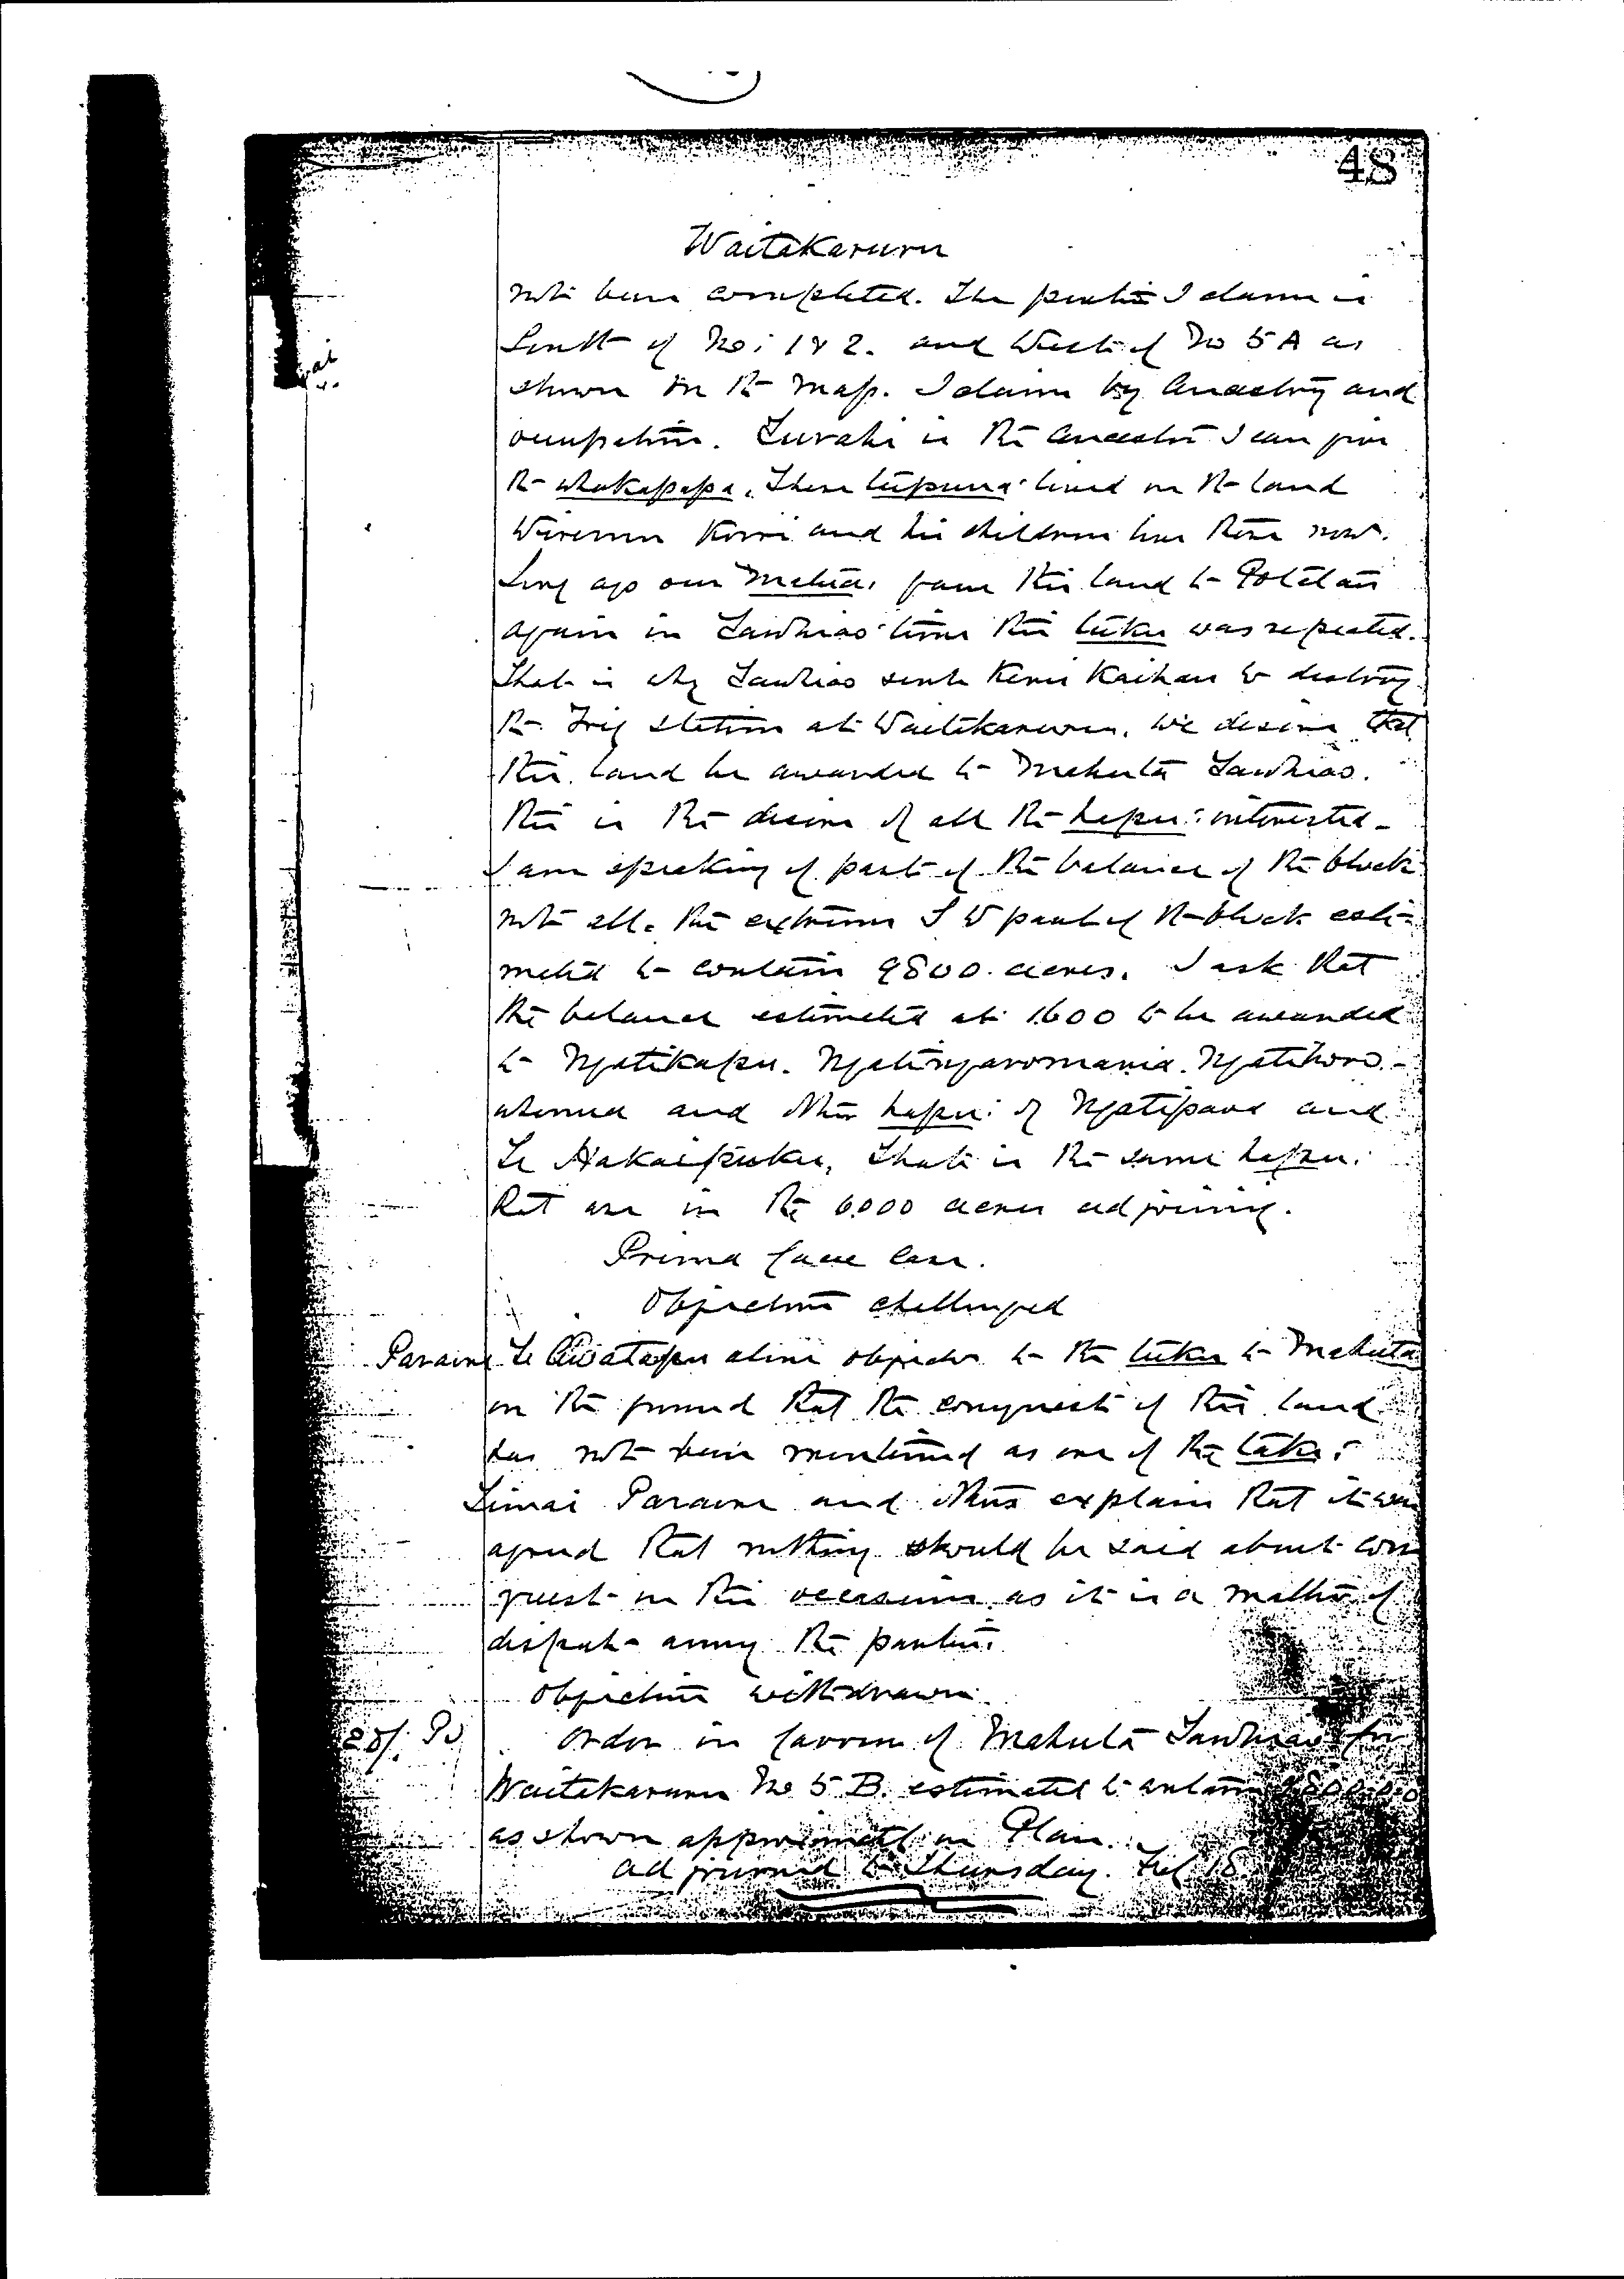 48
Waitakaruru
not been completed. The portion I claim is
South of Nos 1 & 2. and West of No 5 A as
shown on the map. I claim by Ancestry and
occupation. Turaki is the Ancestor I can give
the whakapapa. These tupuna lived on the land
Wiremu Kowi and his children live there now.
Long ago our matuas gave this land to Potatau
again in Tawhiaos time this tuku was repeated.
That is why Tawhiao sent Kerei Kaihau to destroy
the Trig station at Waitakaruru. We desire that
this land be awarded to Mahuta Tawhiao.
This is the desire of all the hapus interested.
I am speaking of part of the balance of the block
not all. The extreme S W part of the block esti-
mated to contain 9800 acres. I ask that
the balance estimated at 1600 to be awarded
to Ngatikapu. Ngatingaromania. Ngatihoro-
whenua and other hapus of Ngatipaoa and
Te Hakaipuku, that is the same hapus
that are in the 6000 acres adjoining.
Prima facie case.
Objectors challenged
Paraone Te Awatapu alone objects to the tuku to Mahuta
on the ground that the conquest of this land
has not been mentioned as one of the takes
Timai Paraone and others explain that it was
agreed that nothing should be said about con
quest on this occasion as it is a matter of
dispute among the parties
Objection withdrawn
20/. Pd Order in favour of Mahuta Tawhiao for
Waitakaruru No 5 B. estimated to contain 9800.0.0
as shown approximately on Plan.
adjourned to Thursday. Feb 18